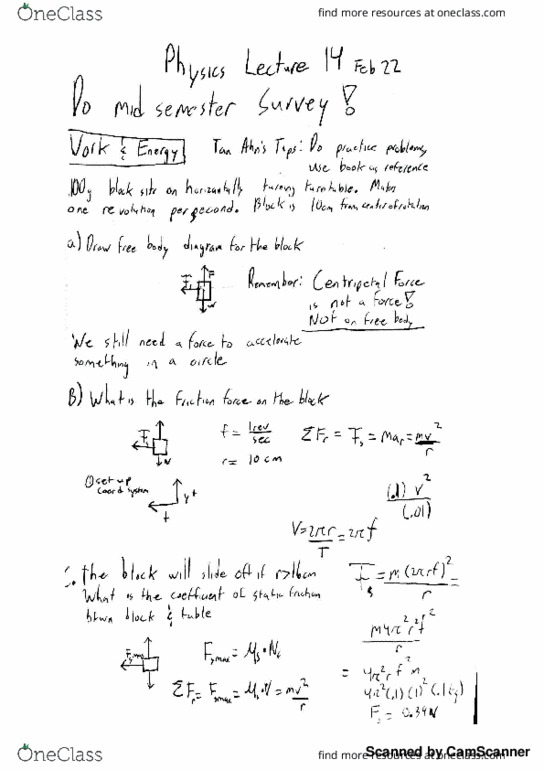 OneClass
find more resources at oneclass.com
Physics Lecture 14 Feb 22
Do mid semester Survey!
Work & Energy
Tan Ahn's Tips: Do practice problems,
use book as reference
100g block sits on horizontally turning turntable. Makes
one revolution per second. Block is 10cm from center of rotation
a) Draw free body diagram for the block
F
Remember: Centripetal Force
is not a force!
NOT on free body
We still need a force to accelerate
something in a circle
B) What is the friction force on the block
f = 1rev/sec
r = 10cm
ΣFr = Fs = Mar = mv²/r
① set up
coord system
y+
+
(.1) v²/(.01)
V = 2πr/T = 2πf
the block will slide off if r>16cm
What is the coefficient of static friction
btwn block & table
Fs = m(2πrf)²/r =
m4π²r²f²/r
= 4π²r f² m
4π²(.1)(1)²(.1kg)
Fs = 0.39N
Fsmax = μs·N
ΣFr = Fsmax = μs·N = mv²/r
Scanned by CamScanner
OneClass
find more resources at oneclass.com